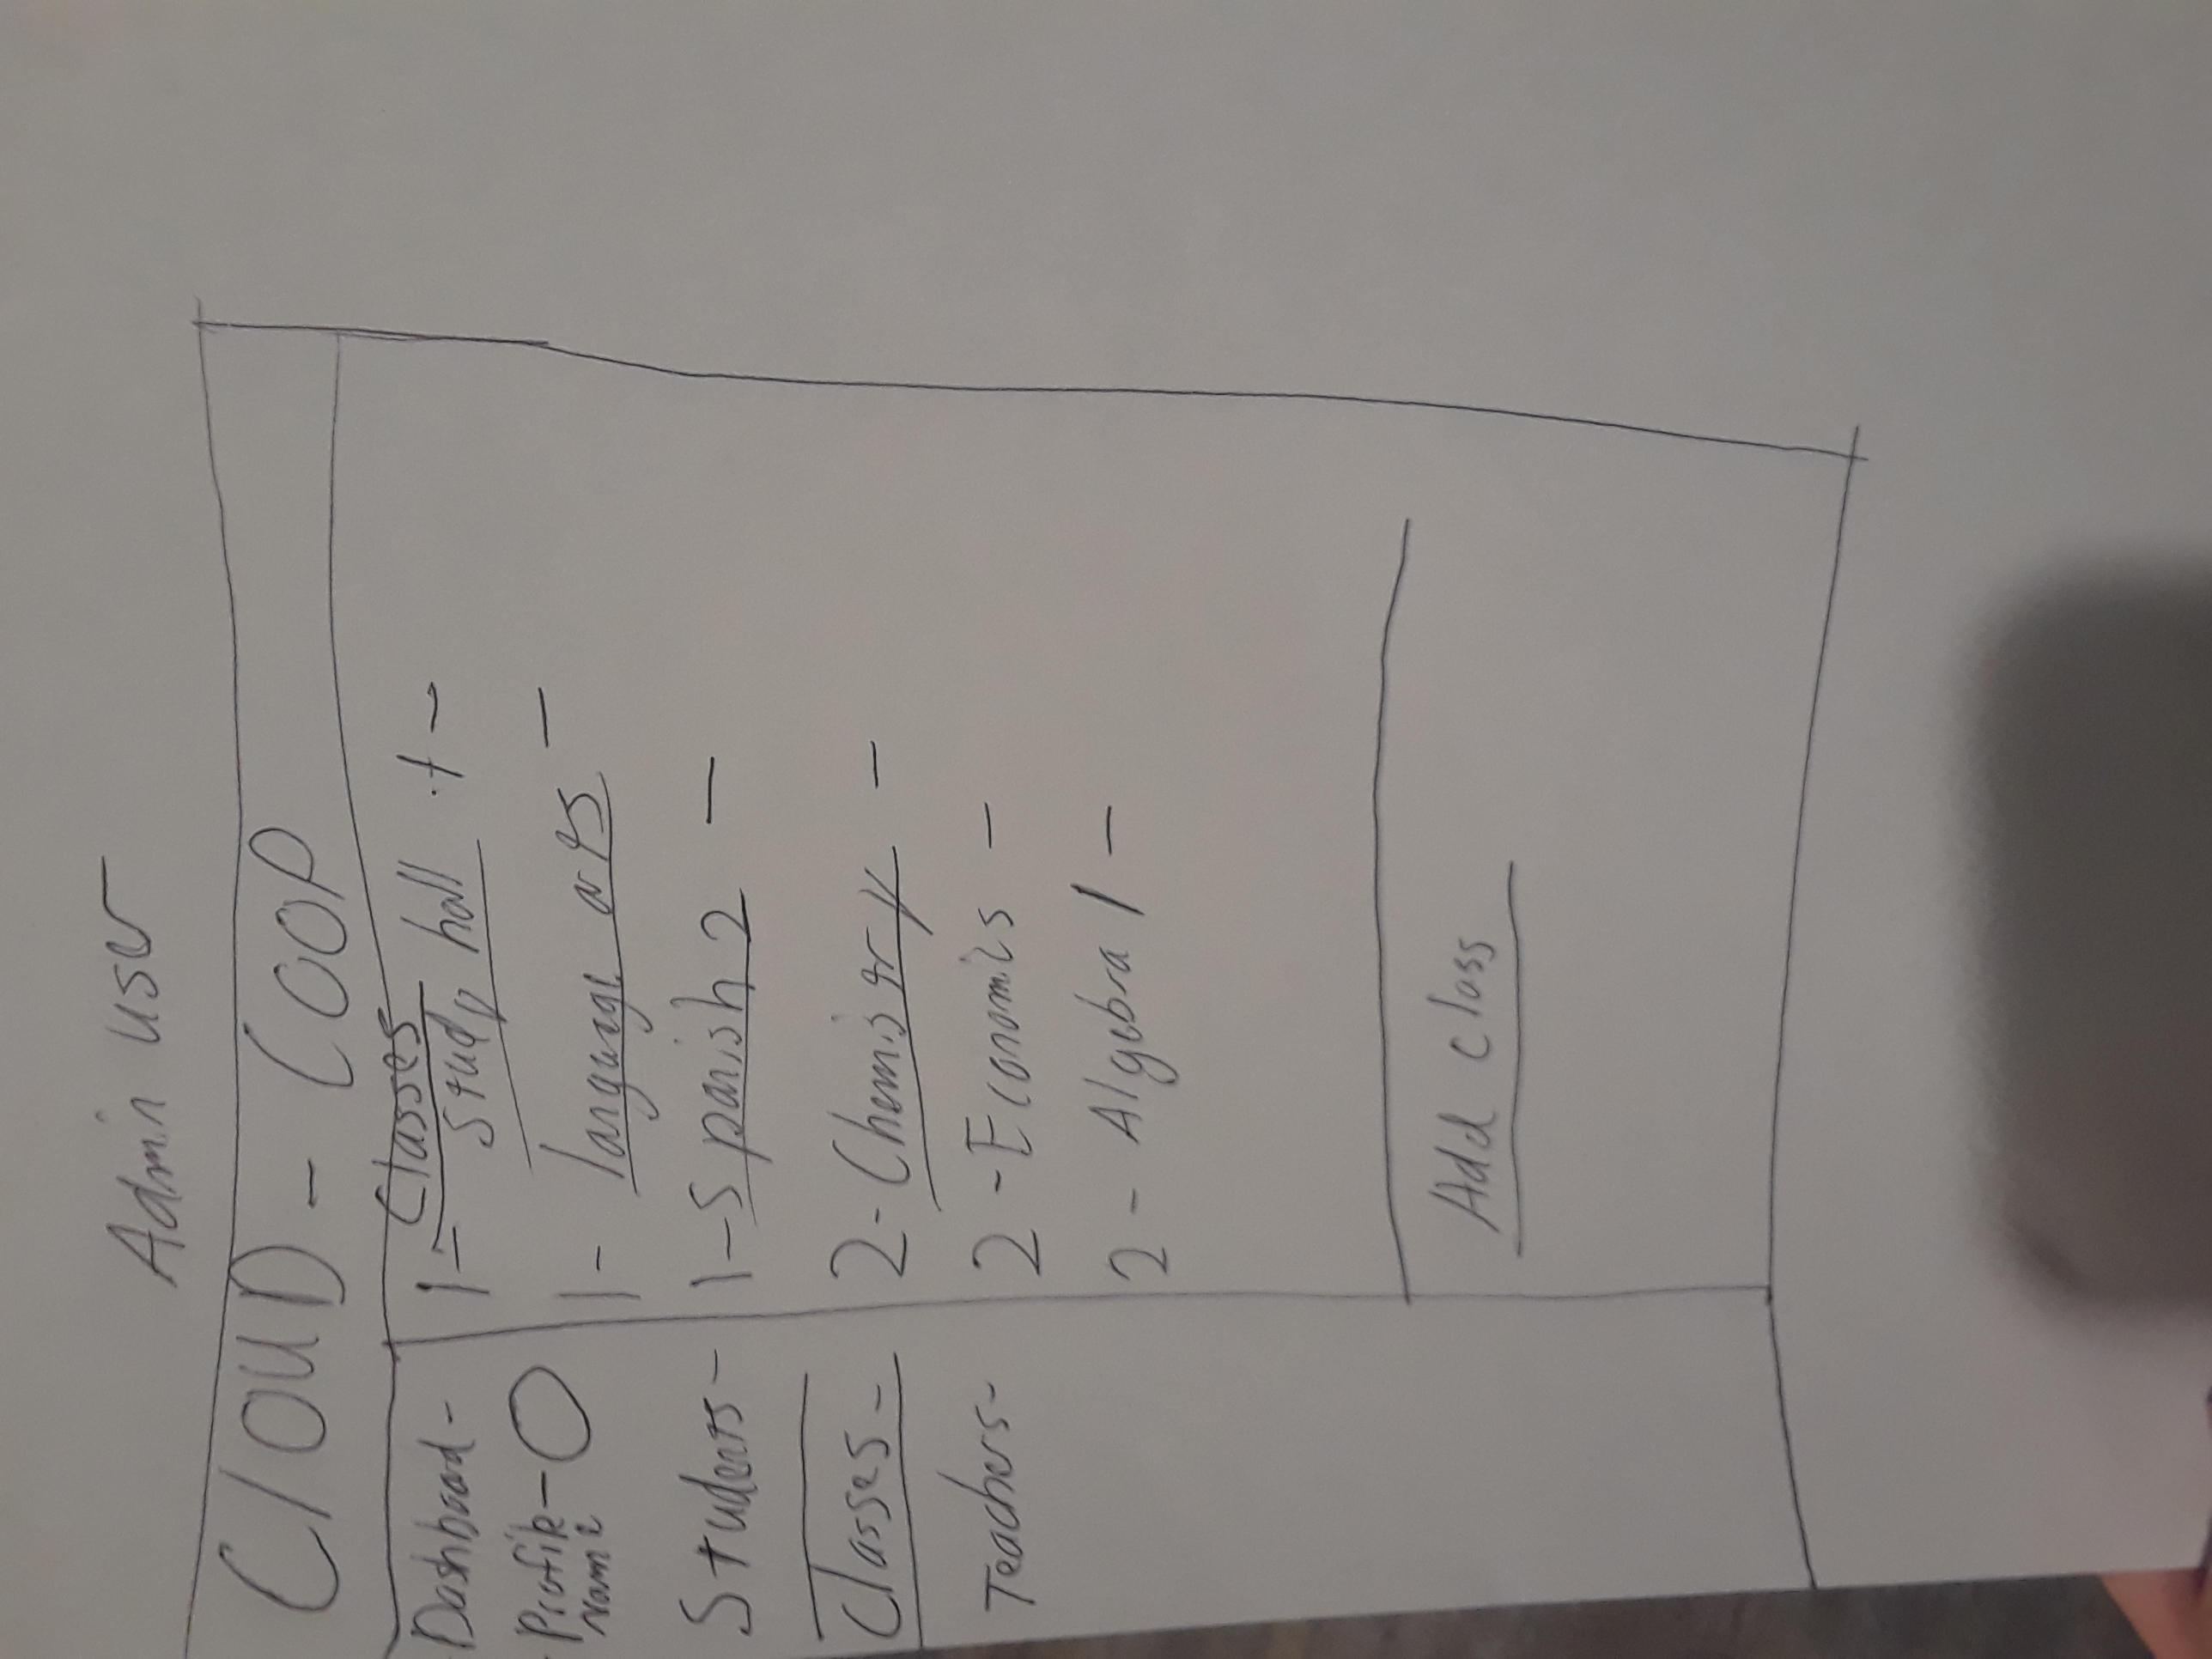 Admin user
CLOUD - COOP
Dashboard -
Profile -
Name
Students -
Classes -
Teachers -
Classes
1 - Study hall + -
1 - language arts -
1 - Spanish 2 -
2 - Chemistry -
2 - Economis -
2 - Algebra 1 -
Add class